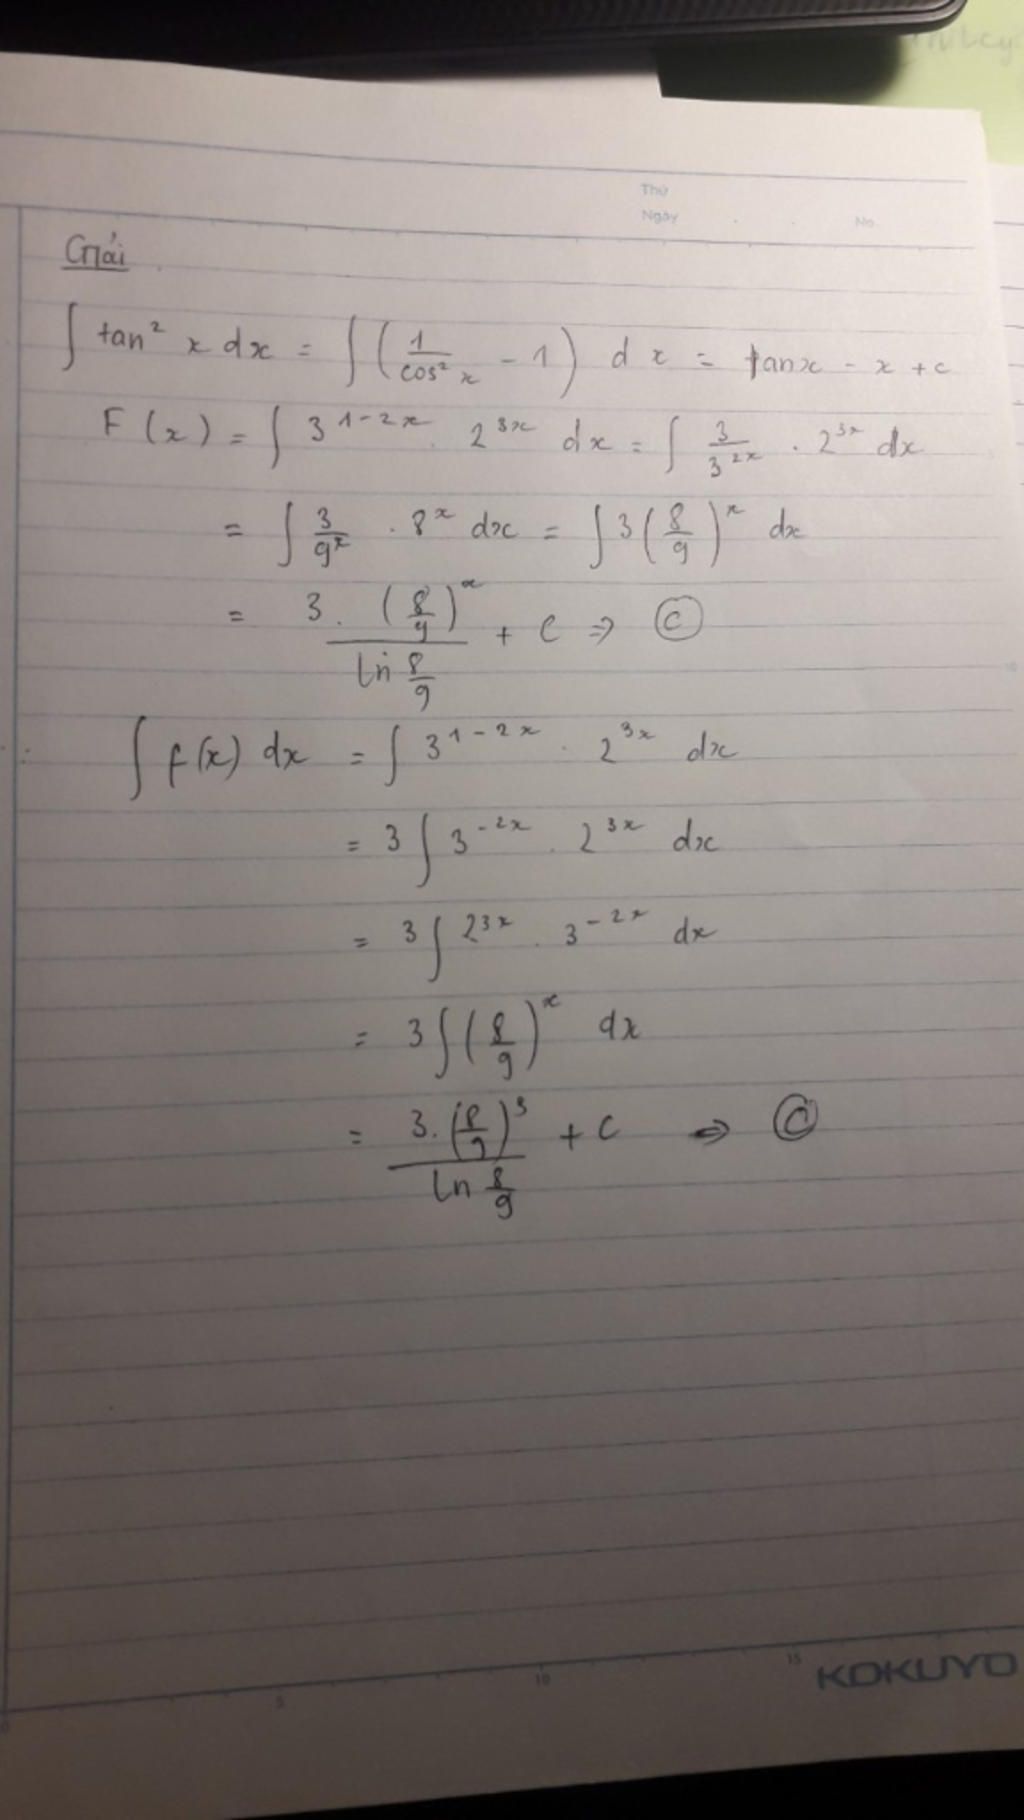 Thứ
Ngày . . No
Giải
∫ tan² x dx = ∫ (1/cos² x - 1) dx = tanx - x + c
F(x) = ∫ 3^{1-2x} . 2^{3x} dx = ∫ 3/3^{2x} . 2^{3x} dx
= ∫ 3/9^x . 8^x dx = ∫ 3 (8/9)^x dx
= 3. (8/9)^x / ln 8/9 + C ⇒ Ⓒ
∫ f(x) dx = ∫ 3^{1-2x} . 2^{3x} dx
= 3 ∫ 3^{-2x} . 2^{3x} dx
= 3 ∫ 2^{3x} . 3^{-2x} dx
= 3 ∫ (8/9)^x dx
= 3. (8/9)^3 / ln 8/9 + C ⇒ Ⓒ
0 5 10 15 KOKUYO